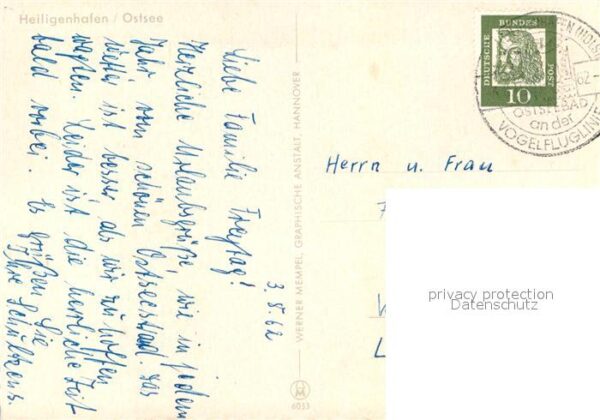 Heiligenhafen / Ostsee
3.8.62
Liebe Familie Freytag!
Herzliche Urlaubsgrüße, wie in jedem
Jahr vom schönen Ostseestrand. Das
Wetter ist besser als wir zu hoffen
wagten. Leider ist die herrliche Zeit
bald vorbei. Es grüßen Sie
Ihre
WERNER MEMPEL, GRAPHISCHE ANSTALT, HANNOVER
6053
DEUTSCHE BUNDES POST
10
OSTSEEBAD
an der
VOGELFLUGLINIE
Herrn u. Frau
privacy protection
Datenschutz